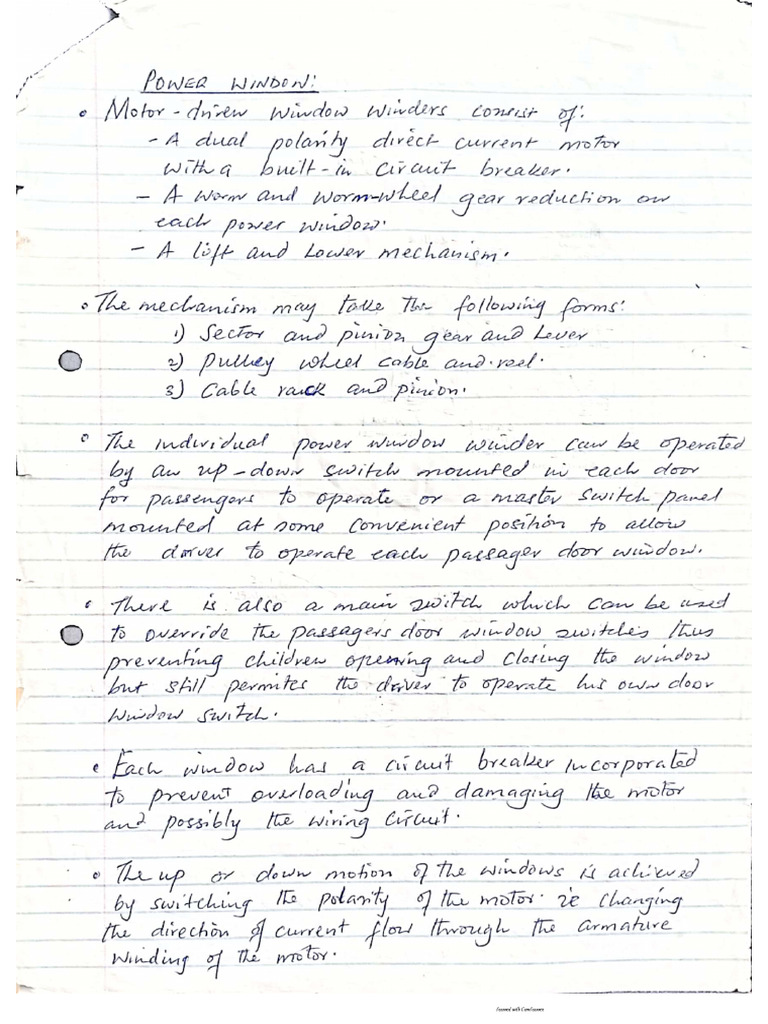 POWER WINDOW:
• Motor-driven window winders consist of:
- A dual polarity direct current motor
with a built-in circuit breaker.
- A worm and worm-wheel gear reduction on
each power window.
- A lift and Lower mechanism.
• The mechanism may take the following forms:
1) Sector and pinion gear and Lever
2) Pulley wheel cable and reel.
3) Cable rack and pinion.
• The individual power window winder can be operated
by an up-down switch mounted in each door
for passengers to operate or a master switch panel
mounted at some convenient position to allow
the driver to operate each passager door window.
• There is also a main switch which can be used
to override the passagers door window switches thus
preventing children opening and closing the window
but still permites the driver to operate his own door
window switch.
• Each window has a circuit breaker incorporated
to prevent overloading and damaging the motor
and possibly the wiring circuit.
• The up or down motion of the windows is achieved
by switching the polarity of the motor. ie changing
the direction of current flow through the armature
winding of the motor.
Scanned with CamScanner